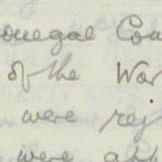 onegal Cou
of the War
were rej
were ab